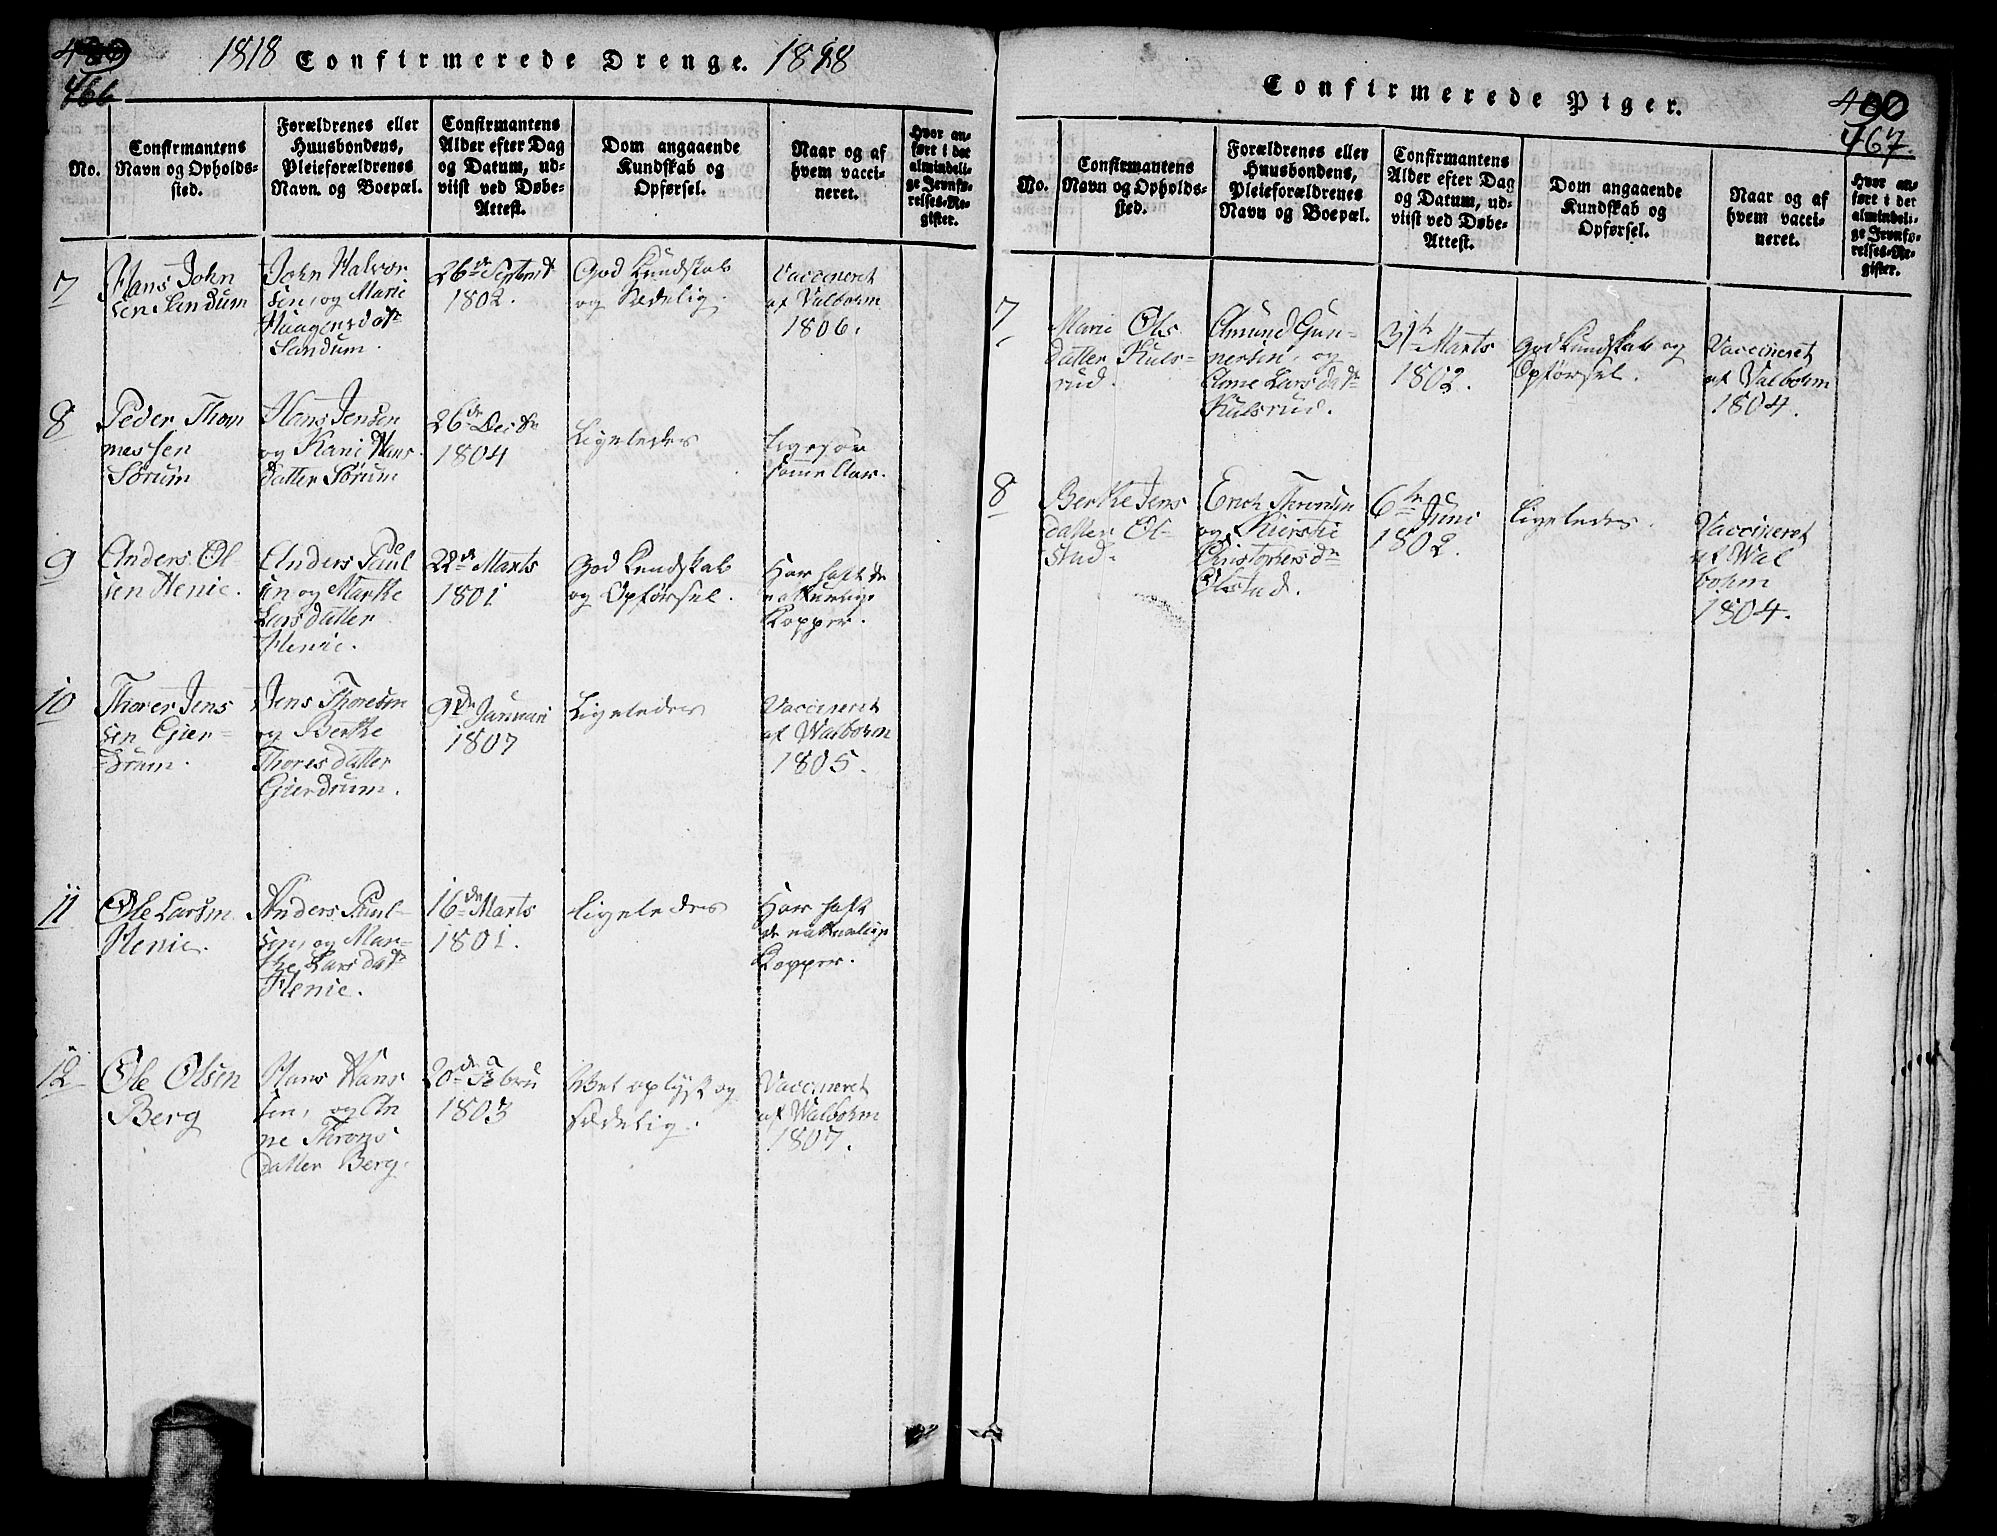 466
1818 Confirmerede Drenge. 1818
No.
Confirmantens
Navn og Opholds-
sted.
Forældrenes eller
Huusbondens,
Pleieforældrenes
Navn. og Boepæl.
Confirmantens
Alder efter Dag
og Datum, ud-
viist ved Døbe-
Attest.
Dom angaaende
Kundskab og
Opførsel.
Naar og af
hvem vacci-
neret.
Hvor an-
ført i det
almindeli-
ge Jevnfø-
relses-Re-
gister.
7
Hans John
sen Sandum
John Halvor
sen, og Marie
Haagensdatr
Sandum.
26de Septembr
1802.
God Kundskab
og Sædelig.
Vaccineret
af Valbohm
1806.
8
Peder Thom
messen
Sørum
Hans Jensen
og Kari Hans
datter Sørum
26de Decbr
1804
Ligeledes
Ligesaa
samme Aar.
9
Anders Ol-
sen Henie.
Anders Paul
sen og Marthe
Larsdatter
Henie.
22de Marts
1801
God Kundskab
og Opførsel.
Har haft de
naturlige
Kopper.
10
Thorer Jens
sen Gier-
drum.
Jens Thoresen
og Berthe
Thoresdatter
Gierdrum.
9de Januari
1807
Ligeledes
Vaccineret
af Walbohm
1805.
11
Ole Larsen
Henie.
Anders Paul-
sen, og Mar-
the Larsdatr
Henie.
16de Marts
1801.
Ligeledes
Har haft
de naturlige
Kopper.
12
Ole Olsen
Berg
Hans Hans
sen, og An
ne Throns
datter Berg.
20de Febru
1803
Vel oplyst og
sædelig.
Vaccineret
af Walbohm
1807.
Confirmerede Piger.
467.
No.
Confirmantens
Navn og Opholds-
sted.
Forældrenes eller
Huusbondens,
Pleieforældrenes
Navn og Boepæl.
Confirmantens
Alder efter Dag
og Datum, ud-
viist ved Døbe-
Attest.
Dom angaaende
Kundskab og
Opførsel.
Naar og af
hvem vacci-
neret.
Hvor an-
ført i det
almindeli-
ge Jevnfø-
relses-Re-
gister.
7
Marie Ols
datter Kuls-
rud.
Amund Gun-
nersen, og
Anne Larsdatr
Kulsrud.
31te Marts
1802.
God Kundskab og
Opførsel.
Vaccineret
af Valbohm
1804.
8
Berthe Jens
datter Ol-
stad.
Erich Thronsen
og Kiersti
Christophersdr
Olstad.
6te Juni
1802.
Ligeledes.
Vaccineret
af Wal
bohm
1804.